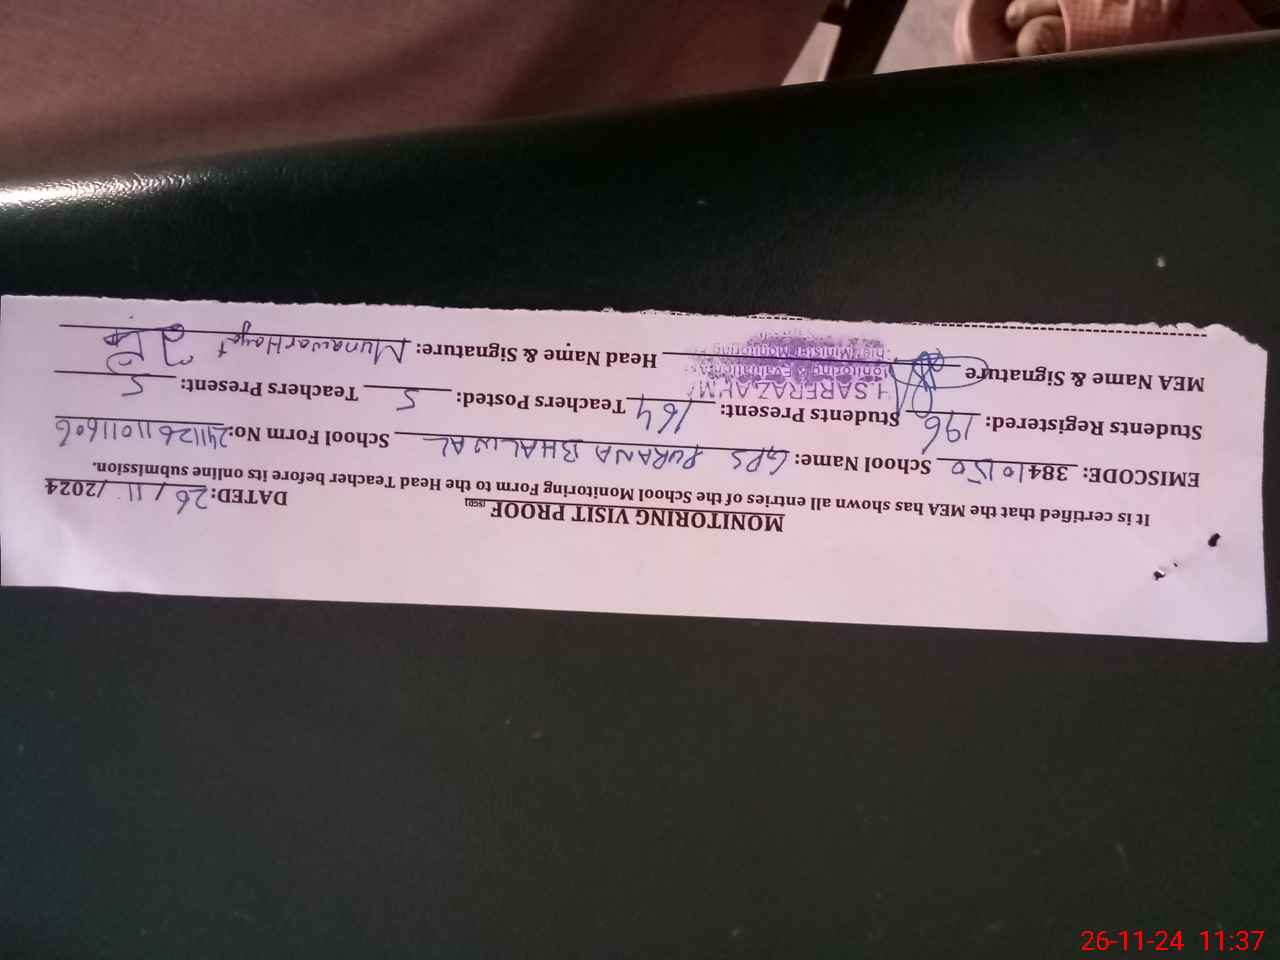 MONITORING VISIT PROOF (SED)
DATED: 26/11/2024
It is certified that the MEA has shown all entries of the School Monitoring Form to the Head Teacher before its online submission.
EMISCODE: 38410150 School Name: GPS PURANA BHALWAL School Form No: 24112611011606
Students Registered: 196 Students Present: 164 Teachers Posted: 5 Teachers Present: 5
MEA Name & Signature Head Name & Signature: Munawar Hayat
SARFRAZ AHM
Monitoring & Evaluation
Minister Monitoring
26-11-24 11:37